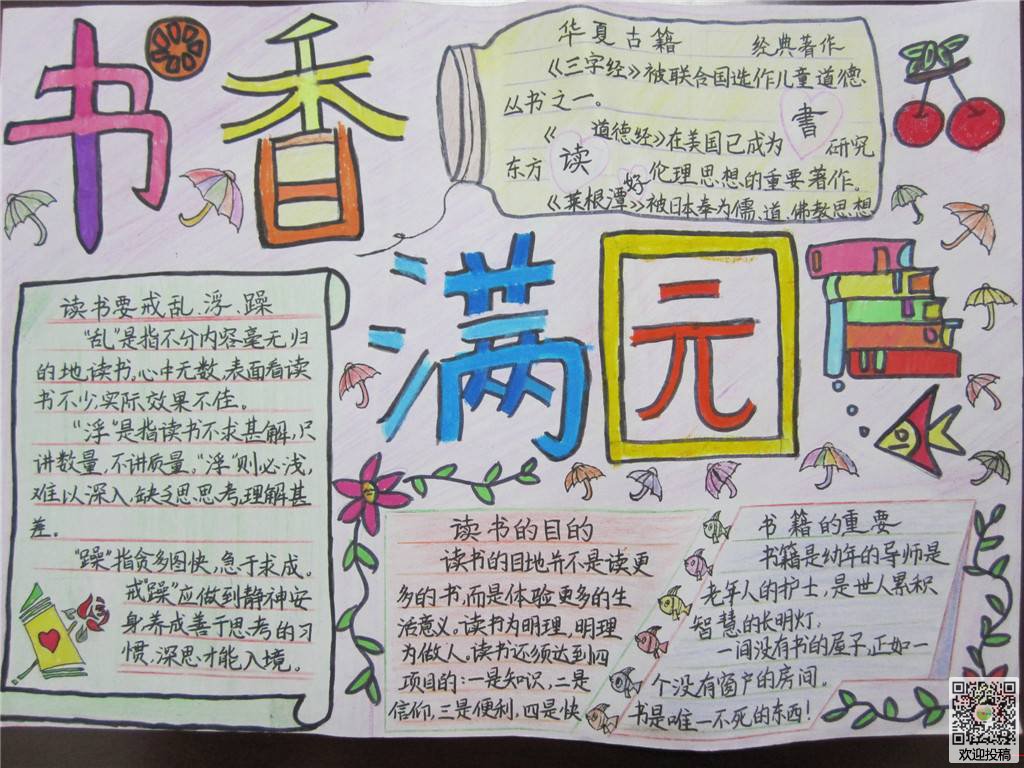 书香
满元
华夏古籍 经典著作
《三字经》被联合国选作儿童道德
丛书之一。
《道德经》在美国已成为 研究
東方 伦理思想的重要著作。
《菜根潭》被日本奉为儒、道、佛教思想
書
读
好
读书要戒乱、浮、躁
“乱”是指不分内容毫无归
的地读书。心中无数，表面看读
书不少，实际效果不佳。
“浮”是指读书不求甚解，只
讲数量，不讲质量。“浮”则必浅，
难以深入，缺乏思思考，理解甚
差。
“躁”指贪多图快，急于求成。
戒“躁”应做到静神安
身，养成善于思考的习
惯，深思才能入境。
读书的目的
读书的目地并不是读更
多的书，而是体验更多的生
活意义。读书为明理，明理
为做人。读书还须达到四
项目的：一是知识，二是
信仰，三是便利，四是快
书籍的重要
书籍是幼年的导师是
老年人的护士，是世人累积
智慧的长明灯。
一间没有书的屋子，正如一
个没有窗户的房间。
书是唯一不死的东西！
欢迎投稿